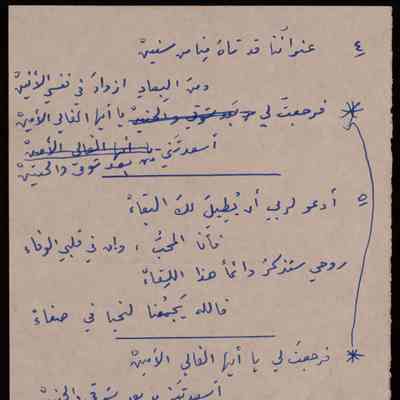 ٤ عنواننا قد تاه منا من سنينْ
ومن البعادِ ازدادَ في نفسي الأنينْ
* فرجعتَ لي من بعد شوقي والحنينْ يا أيها الغالي الأمينْ
أسعدتَني يا أيها الغالي الأمينْ من بعد شوقي والحنينْ
٥ أدعو لربي أن يُطيلَ لكَ البقاءْ
فأنا المحبُّ ، وإن في قلبي الوفاء
روحي ستذكرُ دائماً هذا اللقاءْ
فالله يَجمعُنا لنحيا في صفاءْ
* فرجعتَ لي يا أيها الغالي الأمينْ
أسعدتَني من بعد شوقي والحنينْ